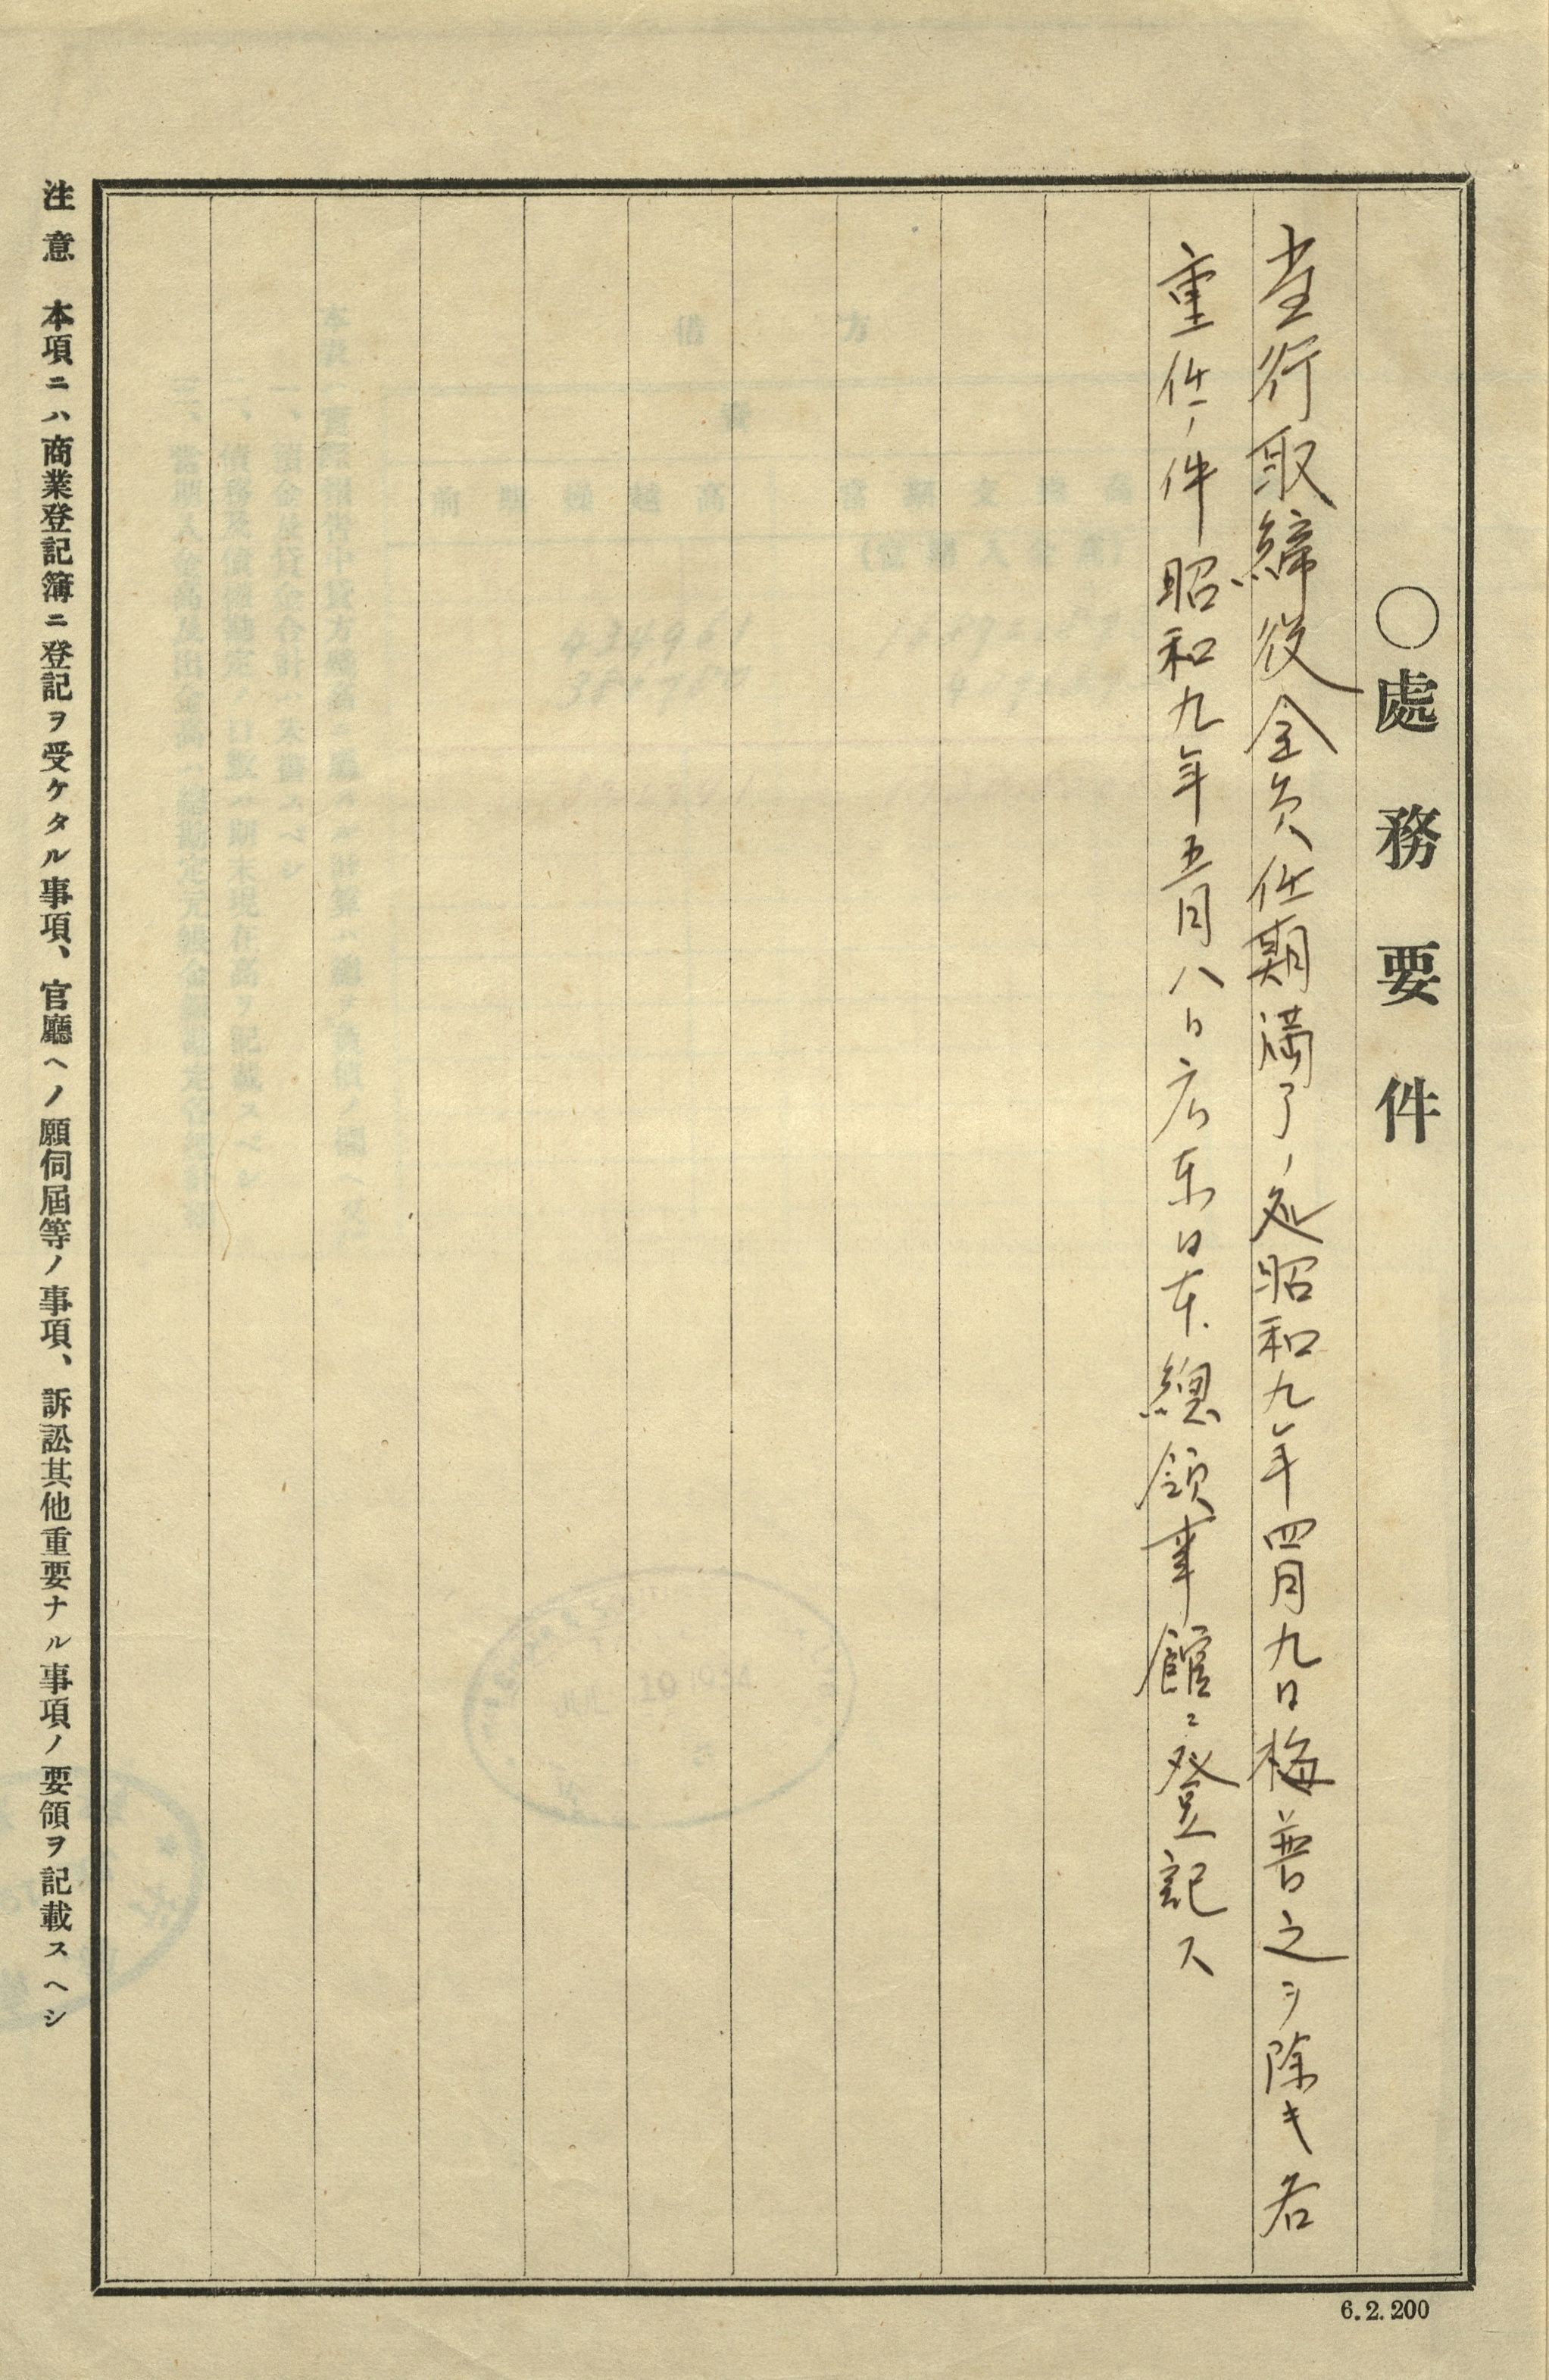 〇處務要件
當行取締役全員任期満了ノ処昭和九年四月九日梅普之ヲ除キ各
重任ノ件昭和九年五月八日広東日本総領事館ニ登記ス
注意 本項ニハ商業登記簿ニ登記ヲ受ケタル事項、官廳ヘノ願伺屆等ノ事項、訴訟其他重要ナル事項ノ要領ヲ記載スヘシ
6.2.200